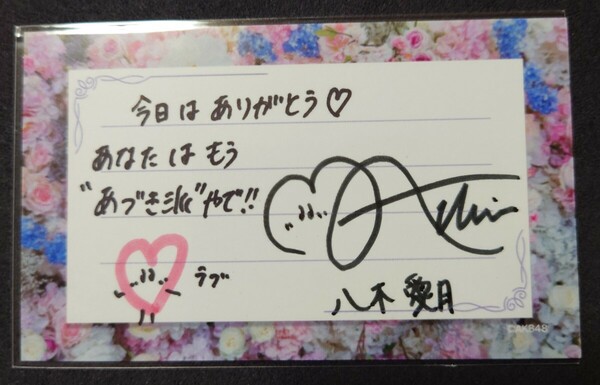 今日は ありがとう♡
あなたは もう
"あづき派"やで!!
ラブ
八木 愛月
©AKB48